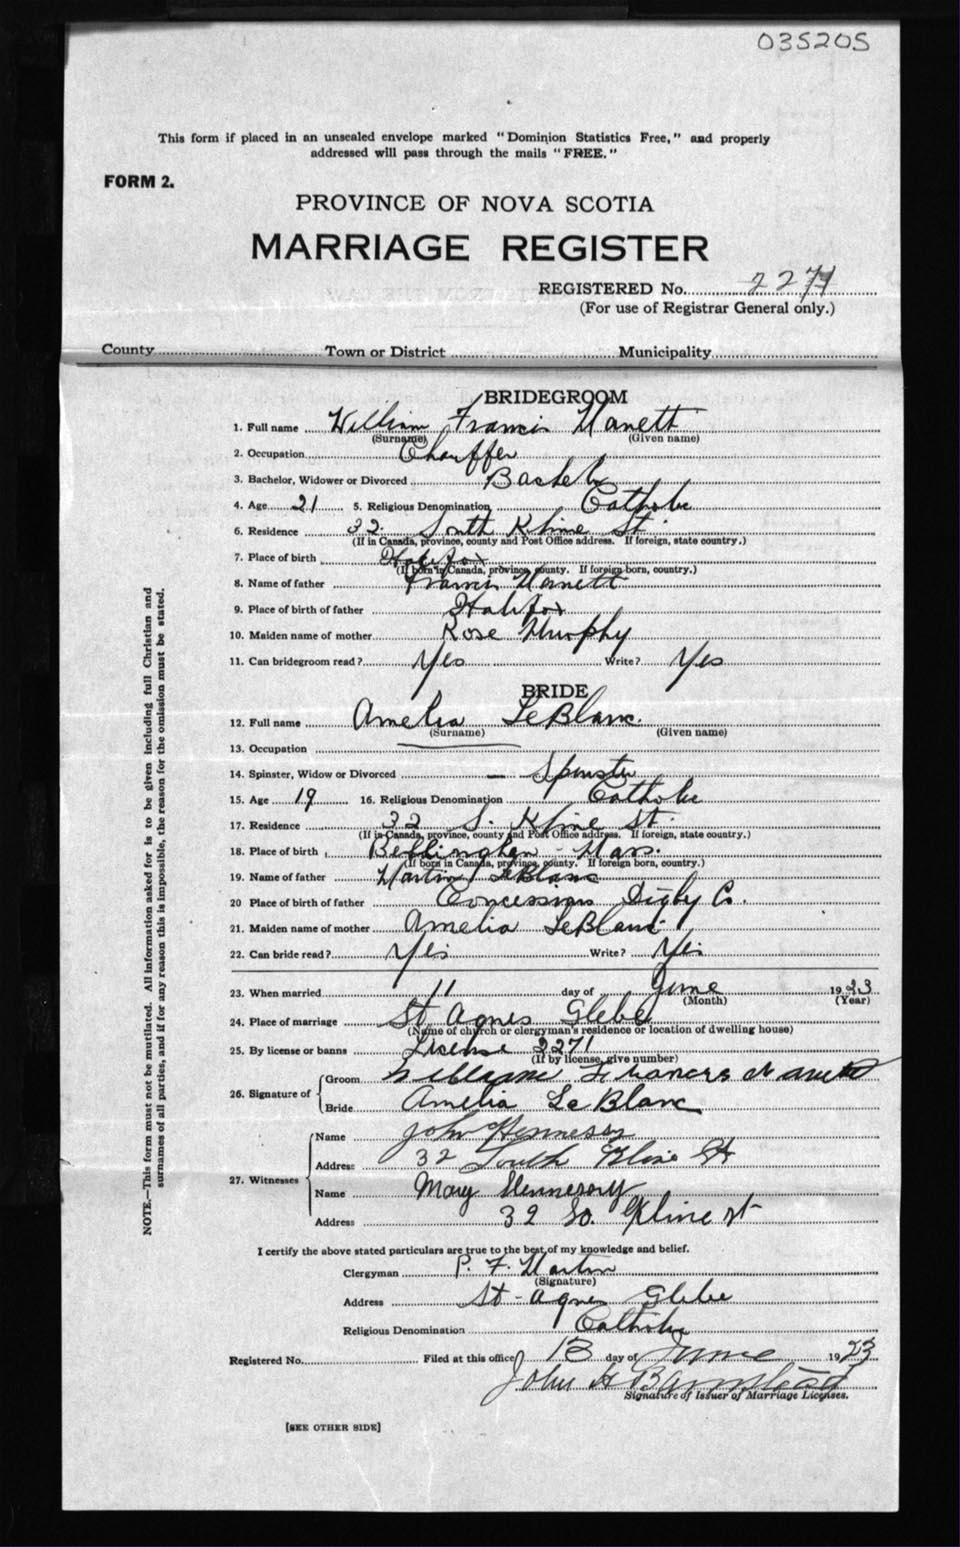 035205
This form if placed in an unsealed envelope marked "Dominion Statistics Free," and properly
addressed will pass through the mails "FREE."
FORM 2.
PROVINCE OF NOVA SCOTIA
MARRIAGE REGISTER
REGISTERED No. 2271
(For use of Registrar General only.)
County Town or District Municipality
BRIDEGROOM
1. Full name William Francis
(Surname) (Given name)
2. Occupation Chauffer
3. Bachelor, Widower or Divorced Bachelor
4. Age 21 5. Religious Denomination Catholic
6. Residence 32 South Kline St.
(If in Canada, province, county and Post Office address. If foreign, state country.)
7. Place of birth Halifax
(If born in Canada, province, county. If foreign-born, country.)
8. Name of father Francis
9. Place of birth of father Halifax
10. Maiden name of mother Rose Murphy
11. Can bridegroom read? Yes Write? Yes
BRIDE
12. Full name Amelia LeBlanc
(Surname) (Given name)
13. Occupation
14. Spinster, Widow or Divorced — Spinster
15. Age 19 16. Religious Denomination Catholic
17. Residence 32 S. Kline St.
(If in Canada, province, county and Post Office address. If foreign, state country.)
18. Place of birth Bellingham - Mass.
(If born in Canada, province, county. If foreign born, country.)
19. Name of father Martin LeBlanc
20 Place of birth of father Concession Digby Co.
21. Maiden name of mother Amelia LeBlanc
22. Can bride read? Yes Write? Yes
23. When married 11 day of June 1923
(Month) (Year)
24. Place of marriage St Agnes Glebe
(Name of church or clergyman's residence or location of dwelling house)
25. By license or banns License 2271
(If by license, give number)
26. Signature of Groom William Francis
Bride Amelia LeBlanc
27. Witnesses Name John Hennessy
Address 32 South Kline St
Name Mary Hennessy
Address 32 So. Kline st
I certify the above stated particulars are true to the best of my knowledge and belief.
Clergyman P. F. Martin
(Signature)
Address St - Agnes Glebe
Religious Denomination Catholic
Registered No. Filed at this office 13 day of June 1923
John H Barnstead
Signature of Issuer of Marriage Licenses.
[SEE OTHER SIDE]
NOTE.—This form must not be mutilated. All information asked for is to be given including full Christian and
surnames of all parties, and if for any reason this is impossible, the reason for the omission must be stated.